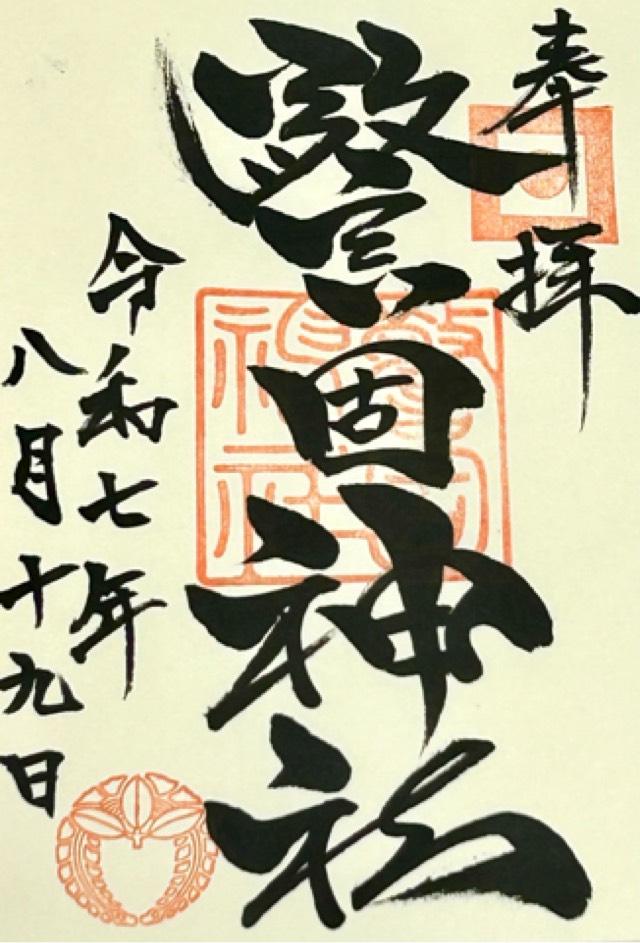 奉拝
警固神社
令和七年
八月十九日